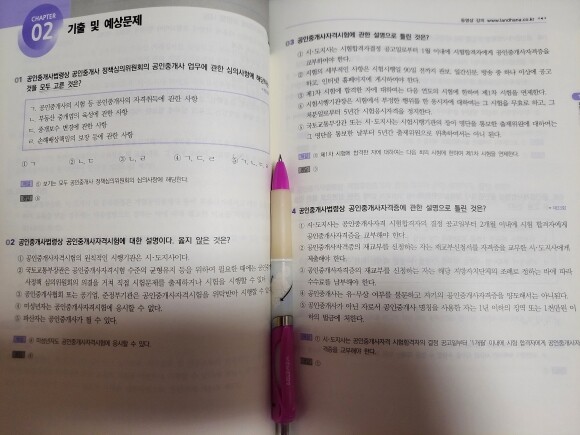 CHAPTER
02
기출 및 예상문제
01 공인중개사법령상 공인중개사 정책심의위원회의 공인중개사 업무에 관한 심의사항에 해당하는
것을 모두 고른 것은?
ㄱ. 공인중개사의 시험 등 공인중개사의 자격취득에 관한 사항
ㄴ. 부동산 중개업의 육성에 관한 사항
ㄷ. 중개보수 변경에 관한 사항
ㄹ. 손해배상책임의 보장 등에 관한 사항
① ㄱ ② ㄴ, ㄷ ③ ㄴ, ㄹ ④ ㄱ, ㄷ, ㄹ ⑤ ㄱ, ㄴ, ㄷ, ㄹ
⑤ 보기는 모두 공인중개사 정책심의위원회의 심의사항에 해당한다.
⑤
02 공인중개사법령상 공인중개사자격시험에 대한 설명이다. 옳지 않은 것은?
① 공인중개사시험의 원칙적인 시행기관은 시·도지사이다.
② 국토교통부장관은 공인중개사자격시험 수준의 균형유지 등을 위하여 필요한 때에는 공인중개
사정책 심의위원회의 의결을 거쳐 직접 시험문제를 출제하거나 시험을 시행할 수 있다.
③ 공인중개사협회 또는 공기업, 준정부기관은 공인중개사자격시험을 위탁받아 시행할 수
④ 미성년자는 공인중개사시험에 응시할 수 없다.
⑤ 파산자는 공인중개사가 될 수 있다.
④ 미성년자도 공인중개사자격시험에 응시할 수 있다.
④
동영상 강의 www.landhana.co.kr
03 공인중개사자격시험에 관한 설명으로 틀린 것은?
① 시·도지사는 시험합격자결정 공고일로부터 1월 이내에 시험합격자에게 공인중개사자격증을
교부하여야 한다.
② 시험의 세부적인 사항은 시험시행일 90일 전까지 관보, 일간신문, 방송 중 하나 이상에 공고
하고, 인터넷 홈페이지에 게시하여야 한다.
③ 제1차 시험에 합격한 자에 대하여는 다음 연도의 시험에 한하여 제1차 시험을 면제한다.
④ 시험시행기관장은 시험에서 부정한 행위를 한 응시자에 대하여는 그 시험을 무효로 하고, 그
처분이 있은 날부터 5년간 시험응시자격을 정지한다.
⑤ 국토교통부장관 또는 시·도지사·시험시행기관의 장이 명단을 통보한 출제위원에 대하여는
그 명단을 통보한 날부터 5년간 출제위원으로 위촉하여서는 아니 된다.
③ 제1차 시험에 합격한 자에 대하여는 다음 회의 시험에 한하여 제1차 시험을 면제한다.
③
4 공인중개사법령상 공인중개사자격증에 관한 설명으로 틀린 것은?
① 시·도지사는 공인중개사자격 시험합격자의 결정 공고일로부터 2개월 이내에 시험 합격자에게
공인중개사자격증을 교부해야 한다.
② 공인중개사자격증의 재교부를 신청하는 자는 재교부신청서를 자격증을 교부한 시·도지사에게
제출해야 한다.
③ 공인중개사자격증의 재교부를 신청하는 자는 해당 지방자치단체의 조례로 정하는 바에 따라
수수료를 납부해야 한다.
④ 공인중개사는 유·무상 여부를 불문하고 자기의 공인중개사자격증을 양도해서는 아니된다.
⑤ 공인중개사가 아닌 자로서 공인중개사 명칭을 사용한 자는 1년 이하의 징역 또는 1천만원 이
하의 벌금에 처한다.
① 시·도지사는 공인중개사자격 시험합격자의 결정 공고일부터 '1개월' 이내에 시험 합격자에게 공인중개사자
격증을 교부해야 한다.
①